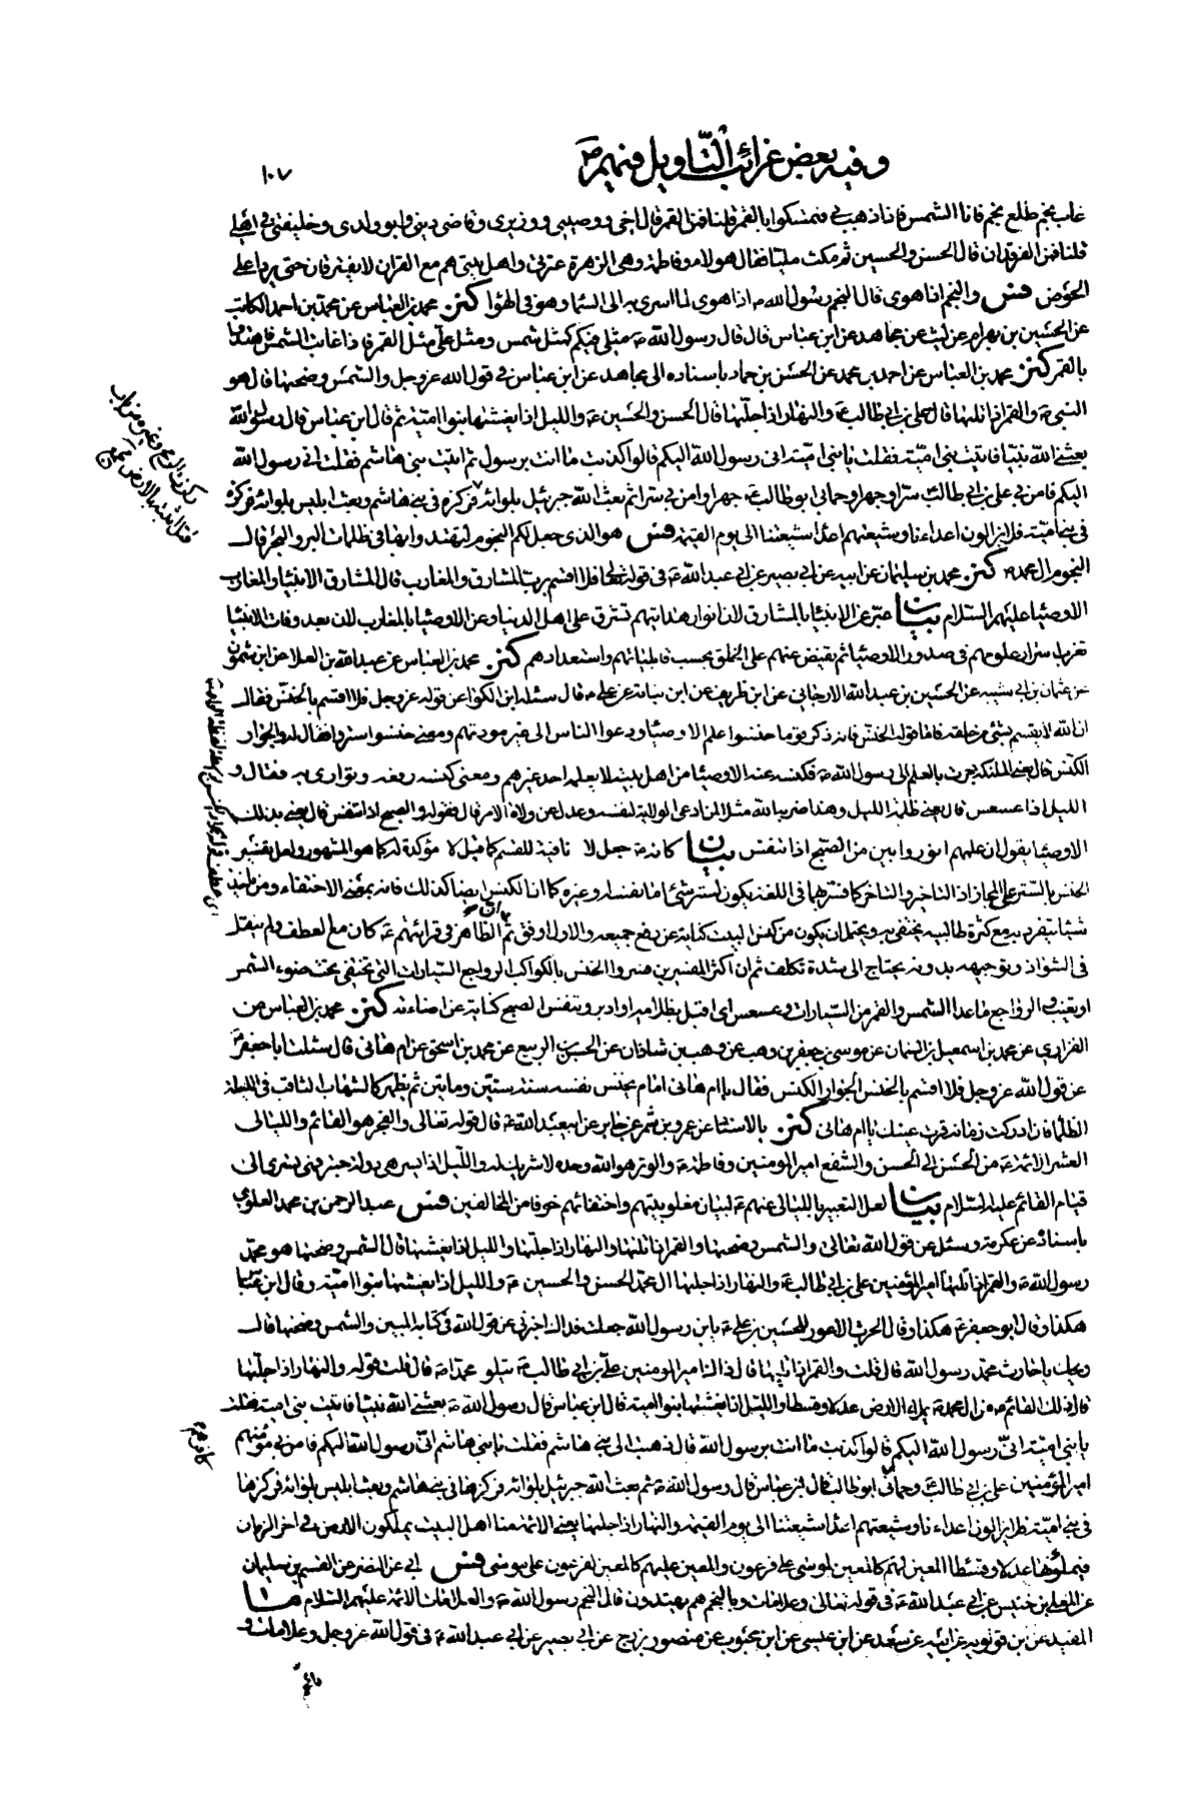 وفيه بعض غرائب التأويل فيهم
١٠٧
غاب نجم طلع نجم فانا الشمس فاذا ذهب بي فتمسكوا بالقمر قلنا فمن القمر قال اخي ووصيي ووزيري وقاضي ديني وابو ولدي وخليفتي في اهلي
قلنا فمن الفرقدان قال الحسن والحسين ثم مكث مليا فقال هولاء وفاطمة وهي الزهرة عترتي واهل بيتي هم مع القران لا يفترقان حتى يردا علي
الحوض فس والنجم اذا هوى قال النجم رسول الله ص اذا هوى لما اسري به الى السماء وهو في الهوا كنز محمد بن العباس عن محمد بن احمد الكاتب
عن الحسين بن بهرام عن ليث عن مجاهد عن ابن عباس قال قال رسول الله ص مثلي فيكم كمثل الشمس ومثل علي مثل القمر فاذا غابت الشمس فاهتدوا
بالقمر كنز محمد بن العباس عن احمد بن محمد عن الحسن بن حماد باسناده الى مجاهد عن ابن عباس في قول الله عز وجل والشمس وضحيها قال هو
النبي ص والقمر اذا تليها قال علي بن ابي طالب ع والنهار اذا جليها قال الحسن والحسين ع والليل اذا يغشيها بنوا امية ثم قال ابن عباس قال رسول الله
بعثني الله نبيا فاتيت بني امية فقلت يا بني امية اني رسول الله اليكم قالوا كذبت ما انت برسول ثم اتيت بني هاشم فقلت اني رسول الله
اليكم فامن بي علي بن ابي طالب سرا وجهرا وحماني ابو طالب ع جهرا وامن بي سرا ثم بعث الله جبرئيل بلوائه فركزه في بني هاشم وبعث ابليس بلوائه فركزه
في بني امية فلا يزالون اعداءنا وشيعتهم اعداء شيعتنا الى يوم القيمة فس هو الذي جعل لكم النجوم لتهتدوا بها في ظلمات البر والبحر قال
النجوم ال محمد ص كنز محمد بن سليمان عن ابيه عن ابي بصير عن ابي عبد الله ع في قوله تعالى فلا اقسم برب المشارق والمغارب قال المشارق الانبياء والمغارب
الاوصياء عليهم السلام بيان عبر عن الانبياء بالمشارق لان انوار هدايتهم تشرق على اهل الدنيا وعن الاوصياء بالمغارب لان بعد وفات الانبياء
تغرب اسرار علومهم في صدور الاوصياء ثم تفيض عنهم على الخلق بحسب قابلياتهم واستعدادهم كنز محمد بن العباس عن عبد الله بن العلا عن ابن شمون
عن عثمان بن ابي شيبه عن الحسين بن عبد الله الارجاني عن ابن طريف عن ابن نباتة عن علي ع قال سئله ابن الكوا عن قوله عز وجل فلا اقسم بالخنس فقال
ان الله لا يقسم بشئ من خلقه فاما قوله الخنس فانه ذكر قوما خنسوا علم الاوصياء ودعوا الناس الى غير مودتهم ومعنى خنسوا ستروا فقال له والجوار
الكنس قال يعني الملئكة جرت بالعلم الى رسول الله ص فكنسه عنه الاوصيا من اهل بيته لا يعلمه احد غيرهم ومعنى كنسه رفعه وتوارى به فقال و
الليل اذا عسعس قال يعني ظلمة الليل وهذا ضربه الله مثلا لمن ادعى الولاية لنفسه وعدل عن ولاة الامر قال فقوله والصبح اذا تنفس قال يعني بذلك
الاوصيا يقول ان علمهم انور وابين من الصبح اذا تنفس بيان كانه ع جعل لا نافية للقسم كما قيل لا مؤكدة له كما هو المشهور ولعل تفسير
الخنس بالستر على المجاز اذ التاخير والتاخر كما فسر بهما في اللغة يكون لستر شئ اما بنفسه او غيره كما ان الكنس ايضا كذلك فانه بمعنى الاختفاء ومن اخذ
شيئا يتفرد به مع كثرة طالبيه يختفي به ويحتمل ان يكون من كنس البيت كناية عن رفع جميعه والاول اوفق ثم ان الظاهر في قرائتهم ع كان مع العطف ولم ينقل
في الشواذ وتوجيهه بدونه يحتاج الى شدة تكلف ثم ان اكثر المفسرين فسروا الخنس بالكواكب الرواجع السيارات التي تختفي تحت ضوء الشمس
او تغيب والرواجع ما عدا الشمس والقمر من السيارات وعسعس اي اقبل بظلامه او ادبر وتنفس الصبح كناية عن اضاءته كنز محمد بن العباس عن
الفزاري عن محمد بن اسمعيل بن السمان عن موسى بن جعفر بن وهب عن وهب بن شاذان عن الحسن بن الربيع عن محمد بن اسحق عن ام هانى قال سئلت ابا جعفر ع
عن قول الله عز وجل فلا اقسم بالخنس الجوار الكنس فقال يا ام هانى امام يخنس نفسه سنة ستين وماتين ثم يظهر كالشهاب الثاقب في الليلة
الظلماء فان ادركت زمانه قرت عينك يا ام هانى كنز بالاسناد عن عمرو بن شمر عن جابر عن ابي عبد الله ع قال قوله تعالى والفجر هو القائم والليالي
العشر الائمة ع من الحسن الى الحسن والشفع امير المومنين وفاطمة ع والوتر هو الله وحده لا شريك له والليل اذا يسر هي دولة حبتر فهي تسري الى
قيام القائم عليه السلام بيان لعل التعبير بالليالي عنهم ع لبيان مغلوبيتهم واختفائهم خوفا من المخالفين فس عبد الرحمن بن محمد العلوي
باسناده عن عكرمة وسئل عن قول الله تعالى والشمس وضحيها والقمر اذا تليها والنهار اذا جليها والليل اذا يغشيها قال الشمس وضحيها هو محمد
رسول الله ص والقمر اذا تليها امير المؤمنين علي بن ابي طالب ع والنهار اذا جليها ال محمد الحسن والحسين ع والليل اذا يغشيها بنوا امية وقال ابن عباس
هكذا وقال ابو جعفر ع هكذا وقال الحرث الاعور للحسين بن علي ع يابن رسول الله جعلت فداك اخبرني عن قول الله في كتابه المبين والشمس وضحيها قال
ويحك يا حارث محمد رسول الله قال قلت والقمر اذا تليها قال ذاك امير المومنين علي بن ابي طالب ع يتلو محمدا ص قال قلت قوله والنهار اذا جليها
قال ذلك القائم من ال محمد ص يملأ الارض عدلا وقسطا والليل اذا يغشيها بنوا امية قال ابن عباس قال رسول الله ص بعثني الله نبيا فاتيت بني امية فقلت
يا بني امية اني رسول الله اليكم قالوا كذبت ما انت برسول الله قال ذهبت الى بني هاشم فقلت يا بني هاشم اني رسول الله اليكم فامن بي مؤمنهم
امير المؤمنين علي بن ابي طالب ع وحماني ابو طالب قال ابن عباس قال رسول الله ص ثم بعث الله جبرئيل بلوائه فركزها في بني هاشم وبعث ابليس بلوائه فركزها
في بني امية فلا يزالون اعداءنا وشيعتهم اعداء شيعتنا الى يوم القيمة والنهار اذا جليها يعني الائمة منا اهل البيت يملكون الارض في اخر الزمان
فيملؤنها عدلا وقسطا المعين لهم كالمعين لموسى على فرعون والمعين عليهم كالمعين لفرعون على موسى فس ابي عن النضر عن القسم بن سليمان
عن المعلى بن خنيس عن ابي عبد الله ع في قوله تعالى وعلامات وبالنجم هم يهتدون قال النجم رسول الله ص والعلامات الائمة عليهم السلام ما
المفيد عن بن قولويه عن ابيه عن سعد عن ابن عيسى عن ابن محبوب عن منصور بزرج عن ابي بصير عن ابي عبد الله ع في قول الله عز وجل وعلامات و